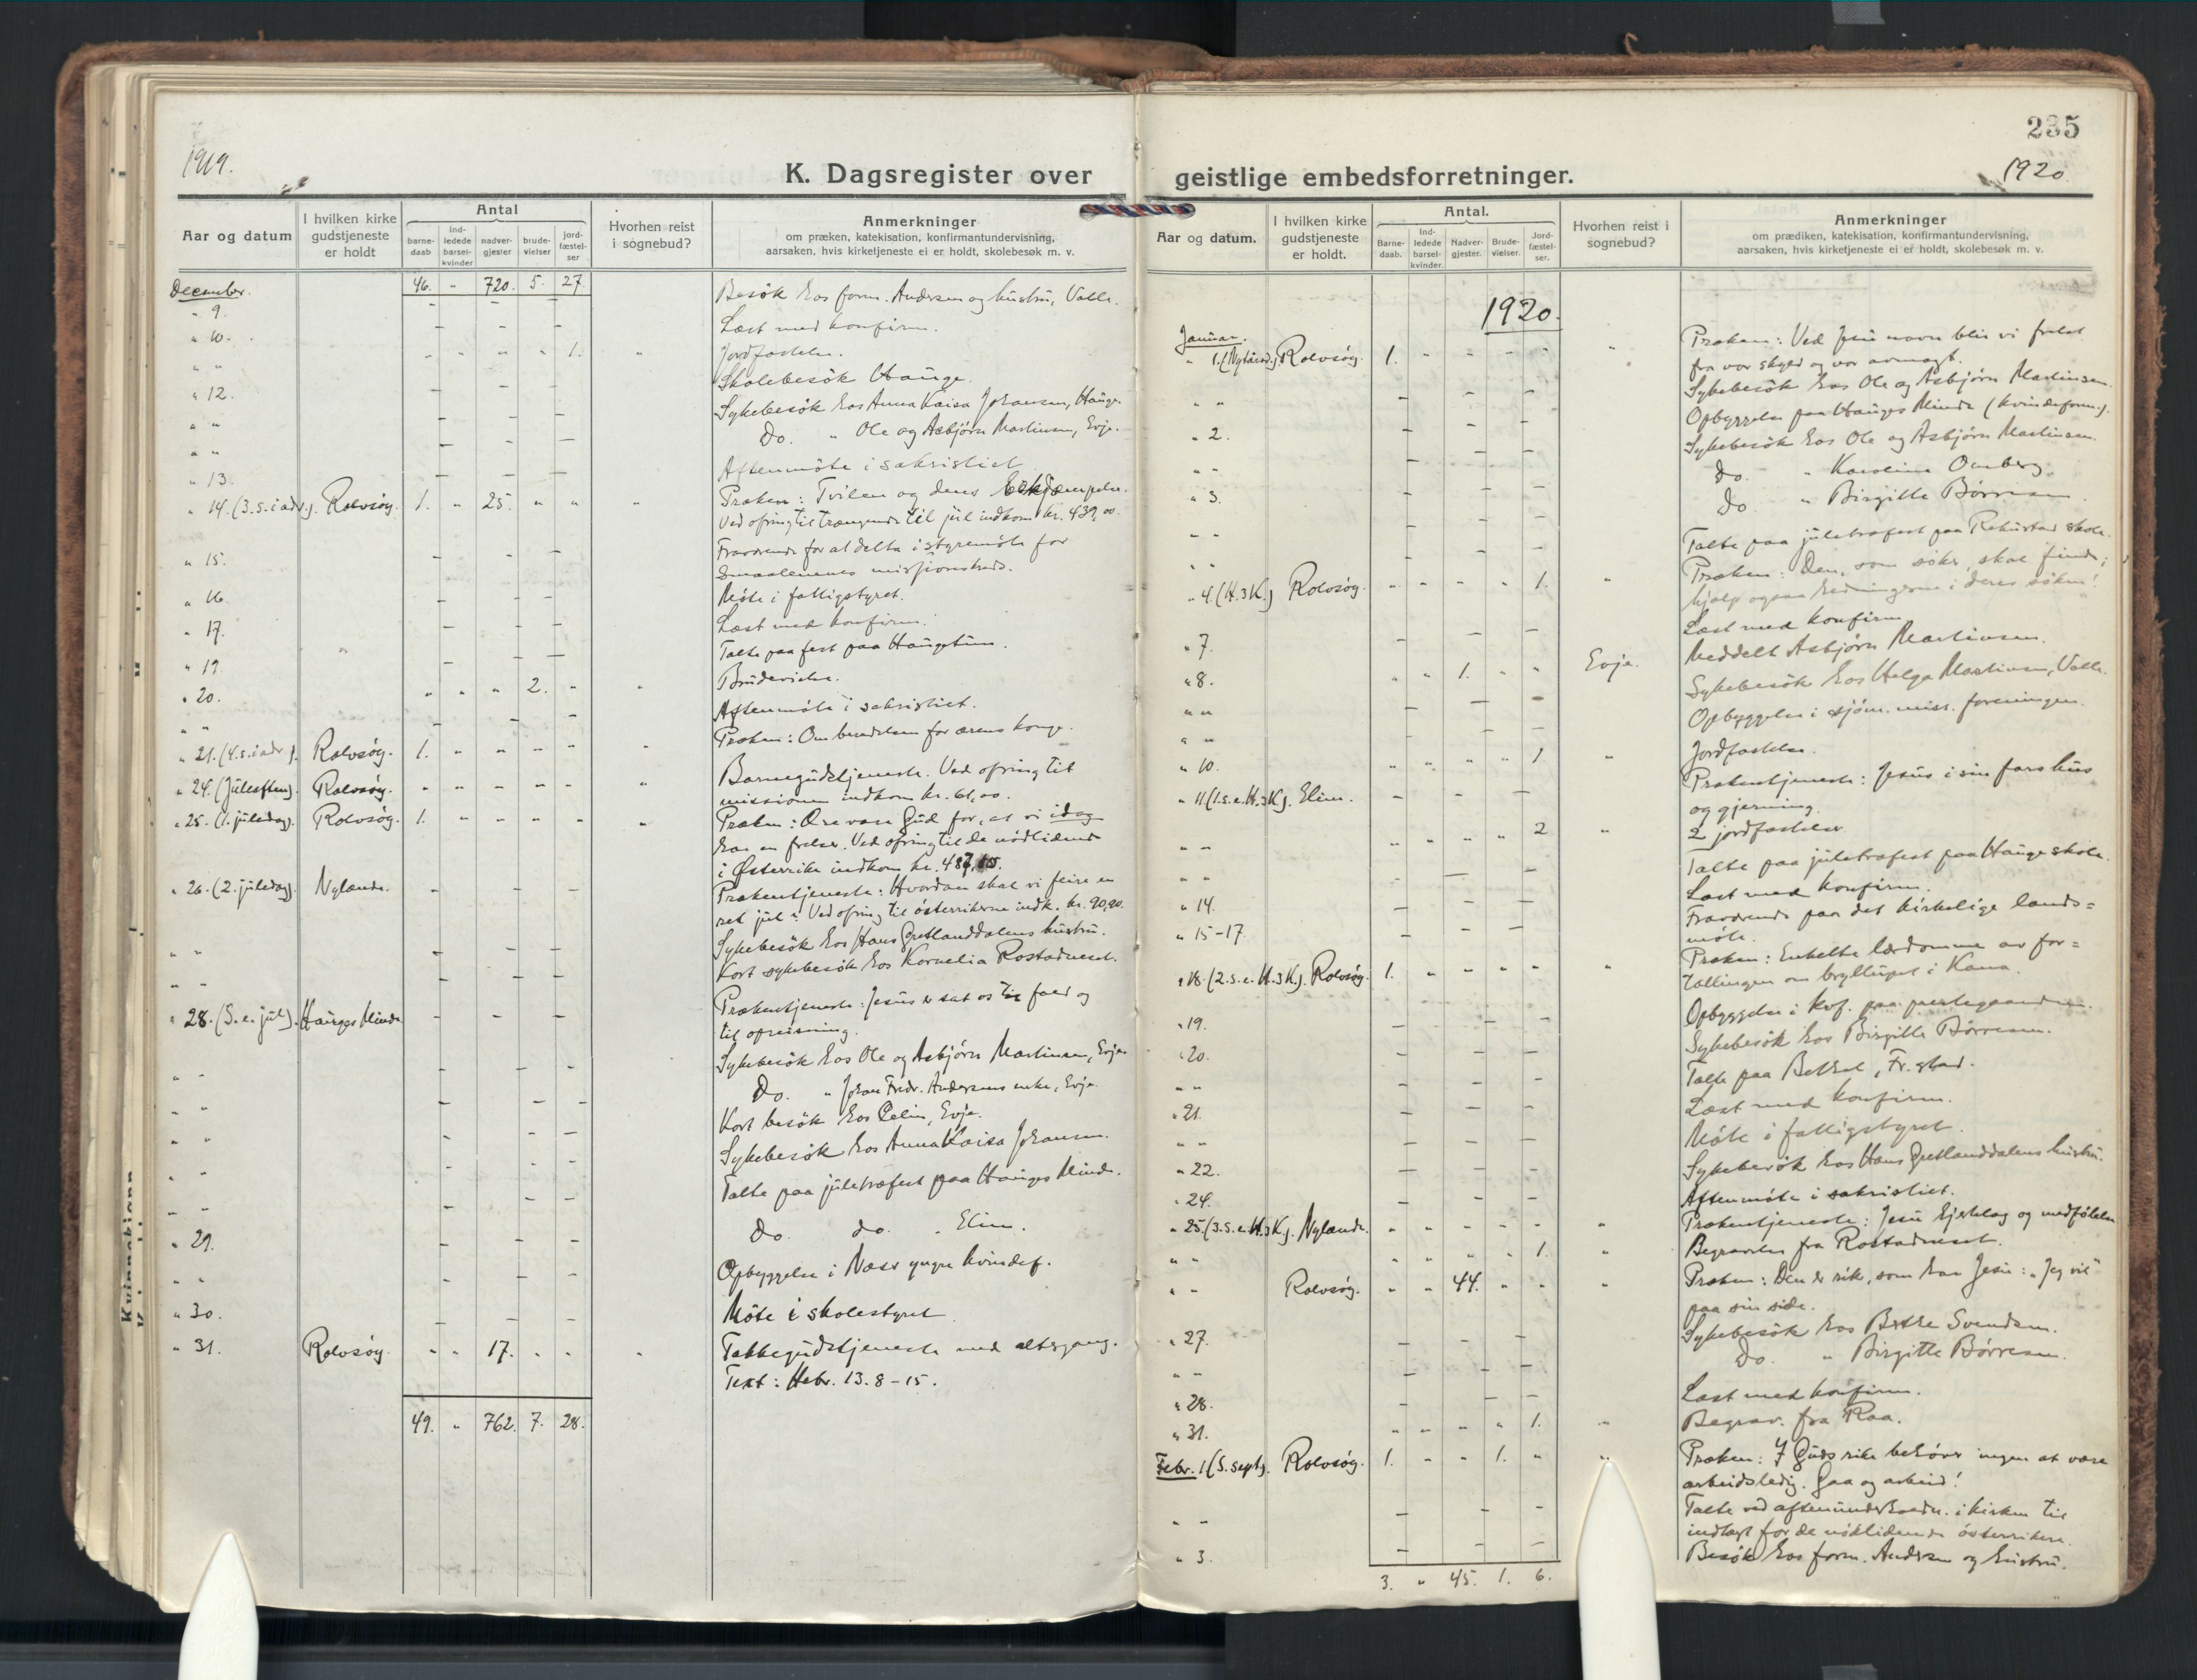 1919.
K. Dagsregister over
Aar og datum
I hvilken kirke gudstjeneste er holdt
Antal
barne-daab
ind-ledede barsel-kvinder
nadver-gjester
brude-vielser
jord-fæstel-ser
Hvorhen reist i sognebud?
Anmerkninger
om præken, katekisation, konfirmantundervisning,
aarsaken, hvis kirketjeneste ei er holdt, skolebesøk m. v.
December. 46. " 720. 5. 27
" 9. Besök hos form. Andersen og hustru, Valle.
" 10. Læst med konfirm.
" " " " " " 1. " Jordfæstelse.
" 12. Skolebesök Hauge.
" " Sykebesök hos Anna Kaisa Johansen, Hauge.
" " Do. " Ole og Asbjörn Martinsen, Evje.
" 13. Aftenmöte i sakristiet
" 14. (3. s. i adv.). Rolvsöy. 1. " 25. " " " Præken: Tvilen og dens bekjæmpelse.
Ved ofring til trængende til jul indkom kr. 439,00.
" 15. Fraværende for at delta i styremöte for
Smaalenenes missionskreds.
" 16. Möte i fattigstyret.
" 17. Læst med konfirm.
" 19. Talte paa fest paa Haugetun.
" 20. " " " 2. " " Brudevielse.
" " Aftenmöte i sakristiet.
" 21. (4. s. i adv.). Rolvsöy. 1. " " " " " Præken: Om beredelsen for ærens konge.
" 24. (Juleaften). Rolvsöy. " " " " " " Barnegudstjeneste. Ved ofring til
missionen indkom kr. 61,00.
" 25. (1. juledag). Rolvsöy. 1. " " " " " Præken: Ære være Gud for, at vi idag
har en frelser. Ved ofring til de nödlidende
i Østerrike indkom kr. 487,15.
" 26. (2. juledag). Nylænde. Prækentjeneste: Hvordan skal vi feire en
ret jul? Ved ofring til österrikerne indk. kr. 90,90.
" " Sykebesök hos Hans Gretlanddalens hustru.
" " Kort sykebesök hos Kornelia Rostadneset.
" 28. (S. e. jul). Hauges Minde Prækentjeneste: Jesus er sat os til fald og
til opreisning.
" " Sykebesök hos Ole og Asbjörn Martinsen, Evje
" " Do. " Johan Fredr. Andersens enke, Evje.
" " Kort besök hos Pelin, Evje.
" " Sykebesök hos Anna Kaisa Johansen.
" " Talte paa juletræfest paa Hauges Minde.
" 29. Do. do. " Elim.
" " Opbyggelse i Næs yngre kvindef.
" 30. Möte i skolestyret
" 31. Rolvsöy. " " 17. " " " Takkegudstjeneste med altergang.
Text: Hebr. 13. 8-15.
49. " 762. 7. 28.
235
1920.
geistlige embedsforretninger.
Aar og datum.
I hvilken kirke gudstjeneste er holdt.
Antal.
Barne-daab.
Ind-ledede barsel-kvinder.
Nadver-gjester.
Brude-vielser.
Jord-fæstel-ser.
Hvorhen reist i sognebud?
Anmerkninger
om prædiken, katekisation, konfirmantundervisning,
aarsaken, hvis kirketjeneste ei er holdt, skolebesøk m. v.
1920.
Januar.
" 1. (Nytårsd.). Rolvsöy. 1. " " " " " Præken: Ved Jesu navn blir vi frelst
fra vor skyld og vor avmagt.
" " Sykebesök hos Ole og Asbjörn Martinsen.
" 2. Opbyggelse paa Hauges Minde (kvindeforn.).
" " Sykebesök hos Ole og Asbjörn Martinsen.
" 3. Do. " Karoline Omberg.
" " Do. " Birgitte Börresen.
" " Talte paa juletræfest paa Rekustad skole.
" 4. (H. 3 K.) Rolvsöy. " " " " 1. " Præken: Den, som söker, skal finde;
hjælp ogsaa hedningerne i deres söken!
" 7. Læst med konfirm
" 8. " " 1. " " Evje. Meddelt Asbjörn Martinsen.
" " Sykebesök hos Helga Martinsen, Valle.
" " Opbyggelse i sjöm. miss. foreningen.
" 10. " " " " 1 " Jordfæstelse.
" 11. (1. s. e. H. 3 K.). Elim. Prækentjeneste: Jesus i sin fars hus
og gjerning.
" " " " " " 2 " 2 jordfæstelser.
" " Talte paa juletræfest paa Hauge skole.
" 14. Læst med konfirm.
" 15-17 Fraværende paa det kirkelige lands=
möte.
" 18. (2. s. e. H. 3 K.). Rolvsöy. 1. " " " " " Præken: Enkelte lærdomme av for=
tællingen om bryllupet i Kana.
" 19. Opbyggelse i kvf. paa prestegaarden.
" 20. Sykebesök hos Birgitte Börresen.
" " Talte paa Betel, Fr.stad.
" 21. Læst med konfirm.
" " Möte i fattigstyret.
" 22. Sykebesök hos Hans Gretlanddalens hustru.
" 24. Aftenmöte i sakristiet.
" 25. (3. s. e. H. 3 K.). Nylænde. " " " " " " Prækentjeneste: Jesu hjertelag og medfölelse
" " " " " " 1. " Begravelse fra Rostadneset.
" " Rolvsöy. " " 44. " " " Præken: Den er rik, som har Jesu: "Jeg vil"
paa sin side.
" 27. Sykebesök hos Berthe Svendsen.
" " Do. " Birgitte Börresen.
" 28. Læst med konfirm.
" 31. " " " " 1. " Begrav. fra Raa.
Febr. 1 (S. sept.). Rolvsöy. 1. " " 1. " " Præken: I Guds rike behöver ingen at være
arbeidsledig. Gaa og arbeid!
" " Talte ved aftenunderholdn. i kirken til
indtægt for de nödlidende österrikere.
" 3. Besök hos form. Andersen og hustru.
3. " 45. 1. 6.